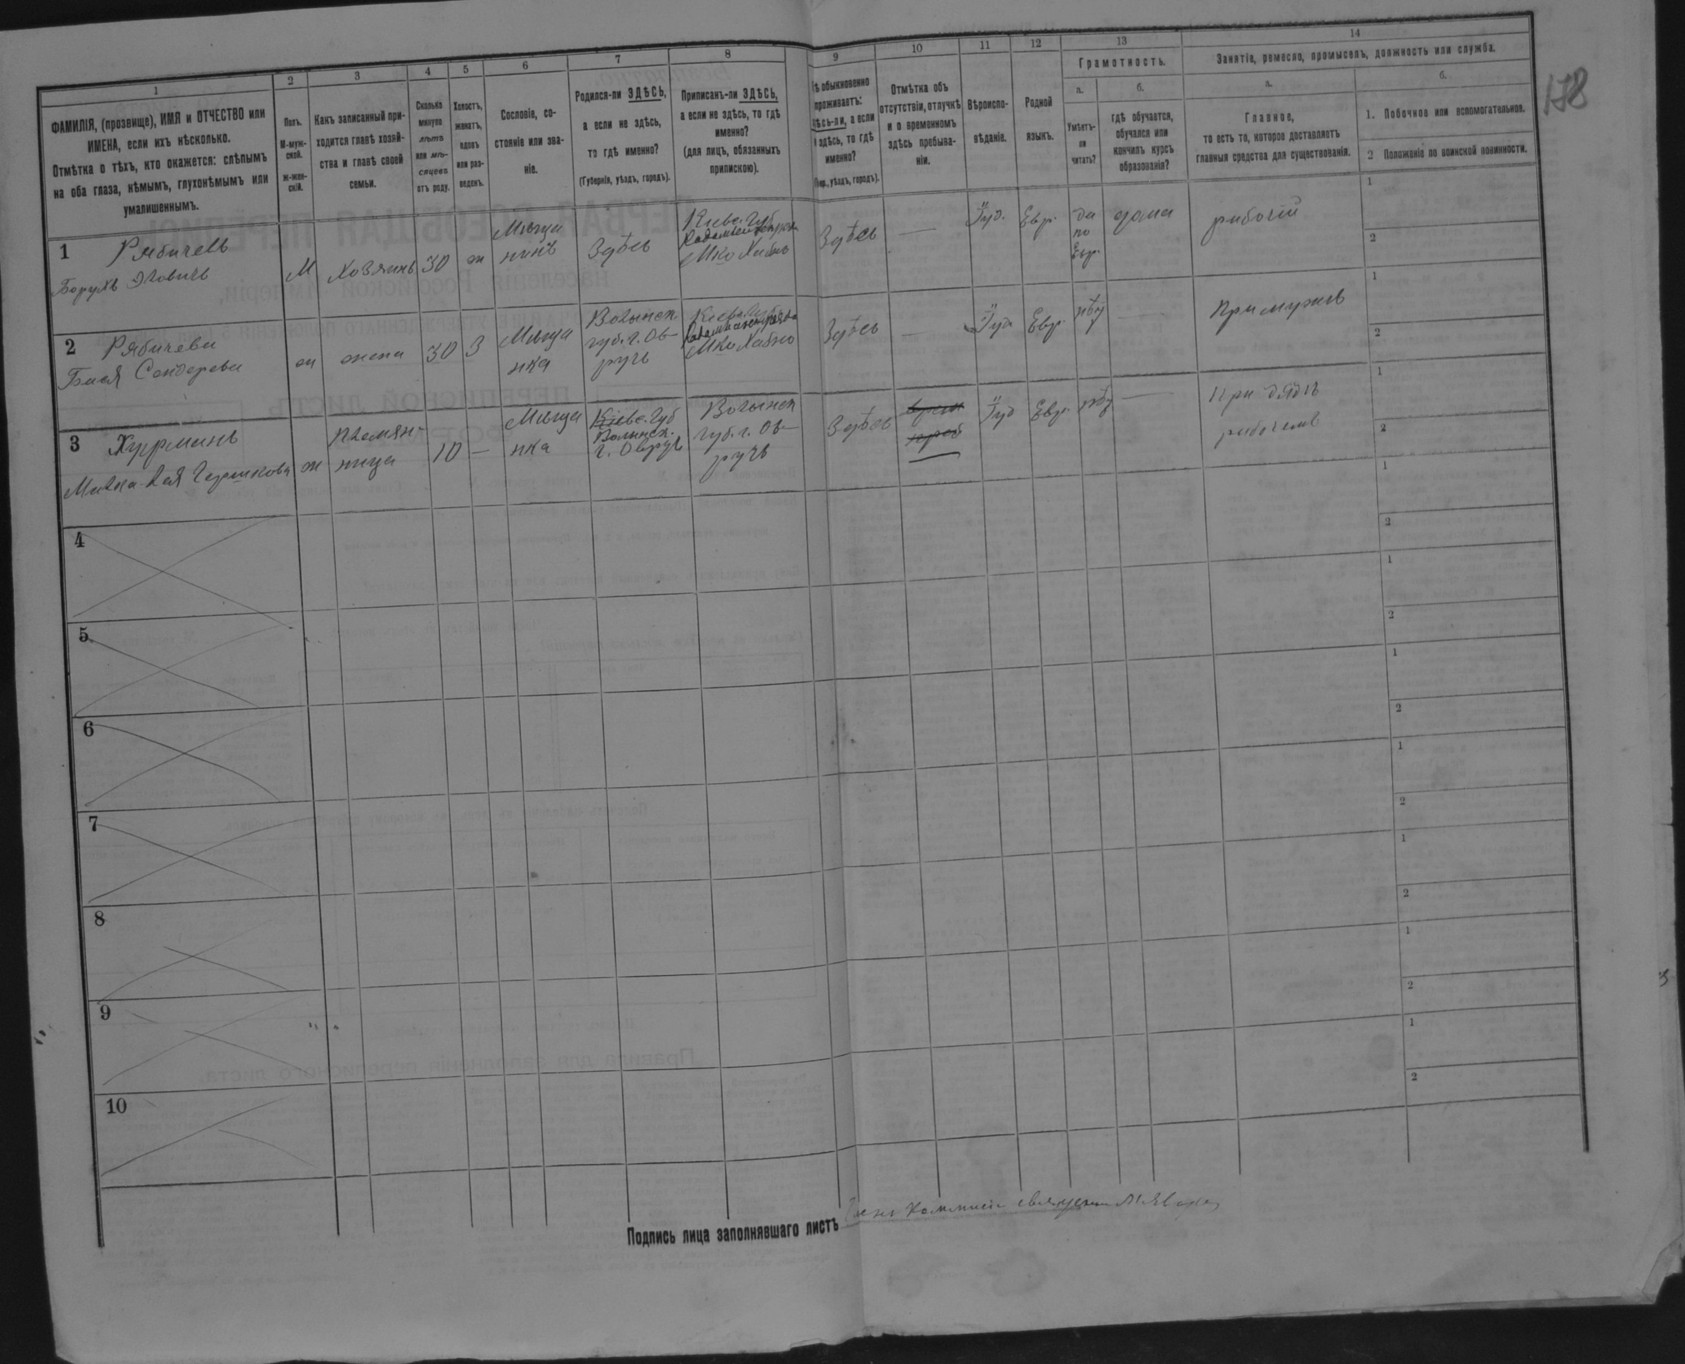 178
1
2
3
4
5
6
7
8
9
10
11
12
13
14
ФАМИЛІЯ, (прозвище), ИМЯ и ОТЧЕСТВО или
ИМЕНА, если ихъ нѣсколько.
Отмѣтка о тѣхъ, кто окажется: слѣпымъ
на оба глаза, нѣмымъ, глухонѣмымъ или
умалишеннымъ.
Полъ.
М-муж-
ской.
ж-жен-
скій.
Какъ записанный при-
ходится главѣ хозяй-
ства и главѣ своей
семьи.
Сколько
минуло
лѣтъ
или мѣ-
сяцевъ
отъ роду.
Холостъ,
женатъ,
вдовъ
или раз-
веденъ.
Сословіе, со-
стояніе или зва-
ніе.
Родился-ли ЗДѢСЬ,
а если не здѣсь,
то гдѣ именно?
(Губернія, уѣздъ, городъ).
Приписанъ-ли ЗДѢСЬ,
а если не здѣсь, то гдѣ
именно?
(для лицъ, обязанныхъ
припискою).
ѣ обыкновенно
проживаетъ:
ѣсь-ли, а если
здѣсь, то гдѣ
именно?
уѣздъ, городъ).
Отмѣтка объ
отсутствіи, отлучкѣ
и о временномъ
здѣсь пребыва-
ніи.
Вѣроиспо-
вѣданіе.
Родной
языкъ.
Грамотность.
а.
Умѣетъ-
ли
читать?
б.
гдѣ обучается,
обучался или
кончилъ курсъ
образованія?
Занятіе, ремесло, промыселъ, должность или служба.
а.
Главное,
то есть то, которое доставляетъ
главныя средства для существованія.
б.
1. Побочное или вспомогательное.
2 Положеніе по воинской повинности.
1
Рябичевъ
Борухъ
М
Хозяинъ
30
ж
Мѣща
нинъ
Здѣсь
Кіевс. Губ
М-ко Хабно
Здѣсь
—
Іуд.
Евр.
да
по
Евр.
дома
рабочій
1
2
2
Рябичева
Бася Сендерева
ж
жена
30
З
Мѣща
нка
Волынск
губ. г. Ов-
ручъ
Кіевс. Губ.
М-ко Хабно
Здѣсь
—
Іуд
Евр.
нѣт
—
При мужѣ
1
2
3
Хурминъ
ж
племян-
ница
10
—
Мѣща
нка
Кіевс. Губ
Волынск.
г. Овручъ
Волынск
губ. г. Ов-
ручъ
Здѣсь
Іуд
Евр.
нѣт
—
При дядѣ
рабочемъ
1
2
4
1
2
5
1
2
6
1
2
7
1
2
8
1
2
9
1
2
10
Подпись лица заполнявшаго листъ